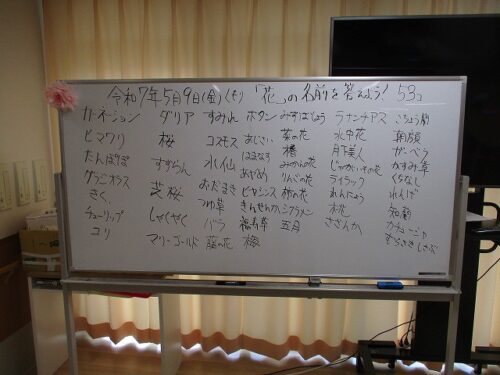 令和7年5月9日(金)(七) 「花」の名前を答えよう! 53コ
カーネーション ダリア すみれ ボタン みずばしょう ラナンキュラス こちょう蘭
ヒマワリ 桜 コスモス あじさい 菜の花 水中花 朝顔
たんぽぽ すずらん 水仙 はまなす 椿 月下美人 ガーベラ
グラジオラス 芝桜 おだまき あやめ みかんの花 じゃがいもの花 かすみ草
きく しゃくやく つゆ草 ヒヤシンス りんごの花 ライラック くちなし
チューリップ マリーゴールド バラ きんせんか 柿の花 れんぎょう れんげ
ユリ 藤の花 福寿草 シクラメン 桃 知菊
梅 五月 さざんか カチューシャ
むらさきしきぶ